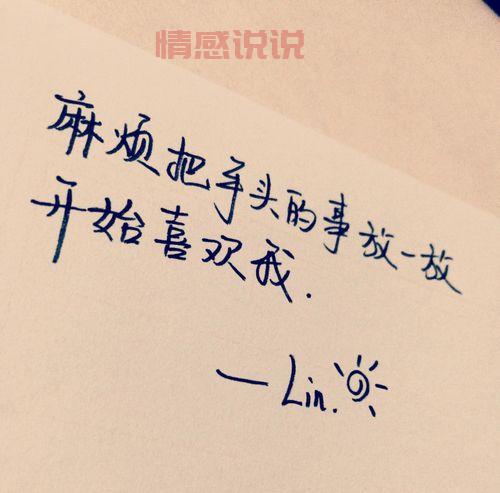 情感说说
麻烦把手头的事放一放
开始喜欢我.
—Lin.